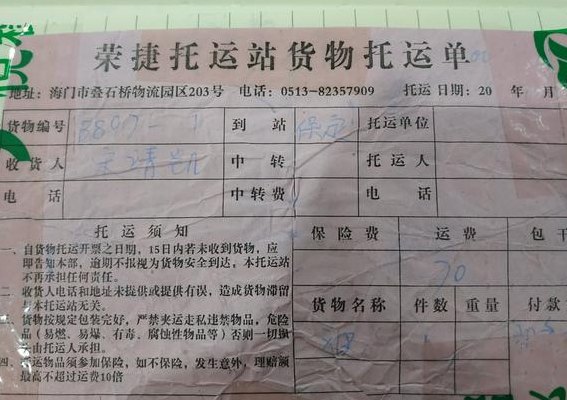 荣捷托运站货物托运单
地址：海门市叠石桥物流园区203号 电话：0513-82357909 托运日期：20 年 月
货物编号 到站 保定 托运单位
收货人 中转 托运人
电话 中转费 电话
托运须知 保险费 运费 包干
一、自货物托运开票之日期，15日内若未收到货物，应
即告知本部，逾期不报视为货物安全到达，本托运站
不再承担任何责任。
70
二、收货人电话和地址未提供或提供有误，造成货物滞留
与本托运站无关。
货物名称 件数 重量 付款
三、货物按规定包装完好，严禁夹运走私违禁物品，危险
品（易燃、易爆、有毒、腐蚀性物品等）否则一切损
由托运人承担。
四、托运物品须参加保险，如不保险，发生意外，理赔额
最高不超过运费10倍